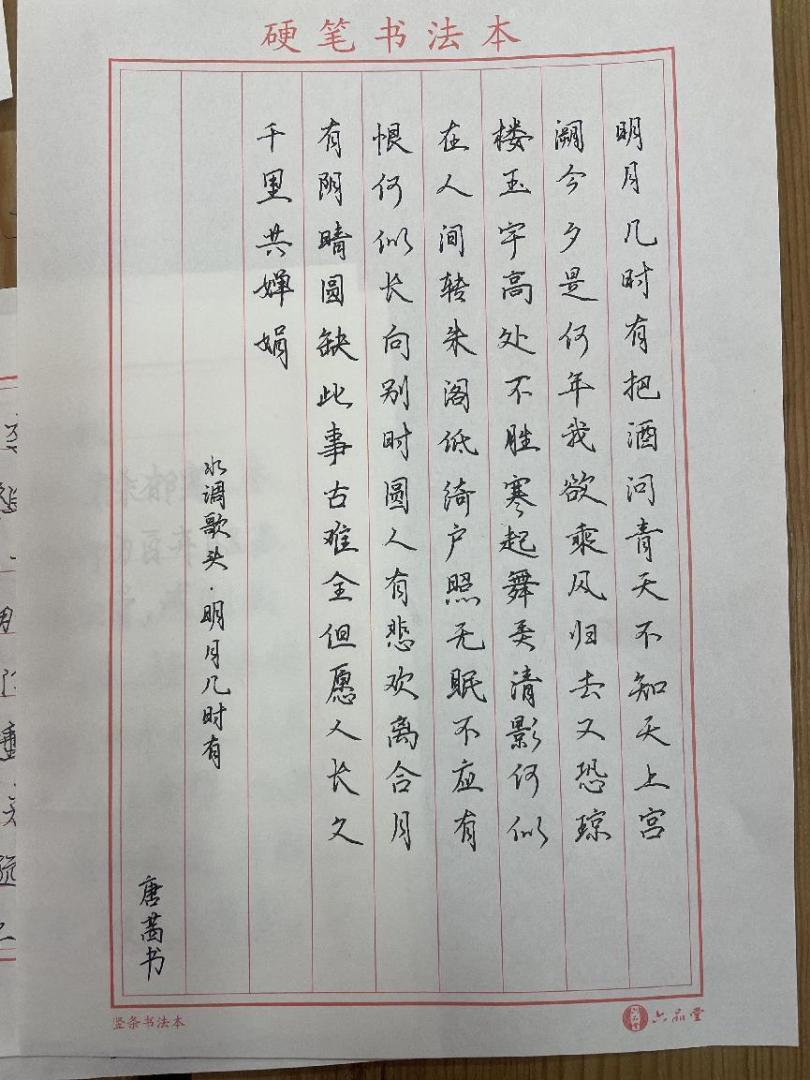 硬笔书法本
明月几时有把酒问青天不知天上宫
阙今夕是何年我欲乘风归去又恐琼
楼玉宇高处不胜寒起舞弄清影何似
在人间转朱阁低绮户照无眠不应有
恨何似长向别时圆人有悲欢离合月
有阴晴圆缺此事古难全但愿人长久
千里共婵娟
水调歌头·明月几时有
唐 书
竖条书法本
六品堂